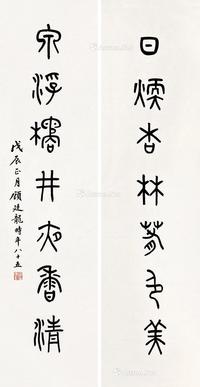 日煗杏林萅色美
泉浮橘井夜香清
戊辰正月顧廷龍時年八十五